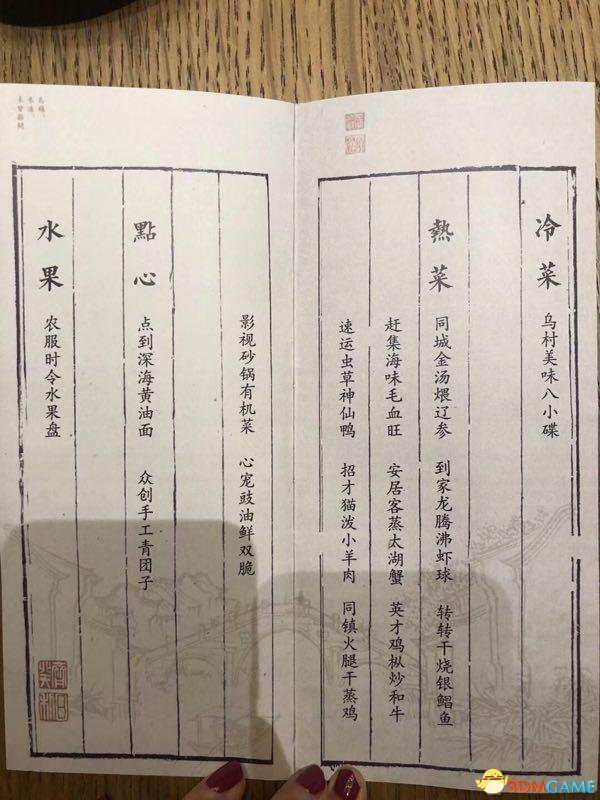 冷菜
乌村美味八小碟
熱菜
同城金汤煨辽参 到家龙腾沸虾球 转转干烧银鲳鱼
赶集海味毛血旺 安居客蒸太湖蟹 英才鸡枞炒和牛
速运虫草神仙鸭 招才猫泼小羊肉 同镇火腿干蒸鸡
影视砂锅有机菜 心宠豉油鲜双脆
點心
点到深海黄油面 众创手工青团子
水果
农服时令水果盘
3DMGAME